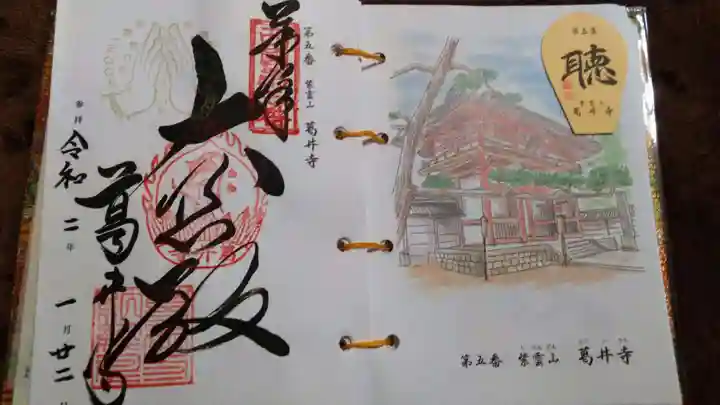 第五番 紫雲山 葛井寺
奉拝
大悲殿
葛井寺
参拝 令和二年 一月廿二日
第五番
聴
葛井寺
第五番 紫雲山 葛井寺